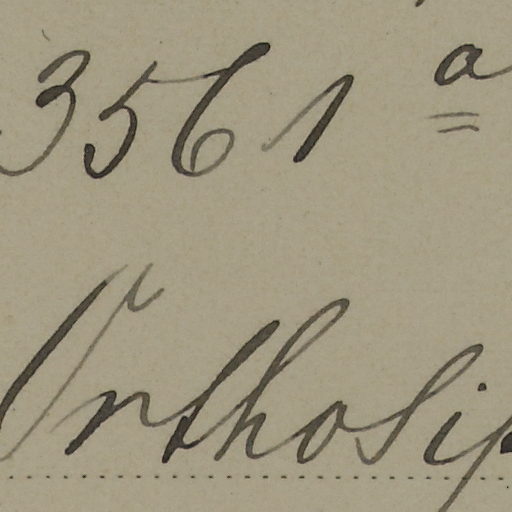 3561 a
Orthosip